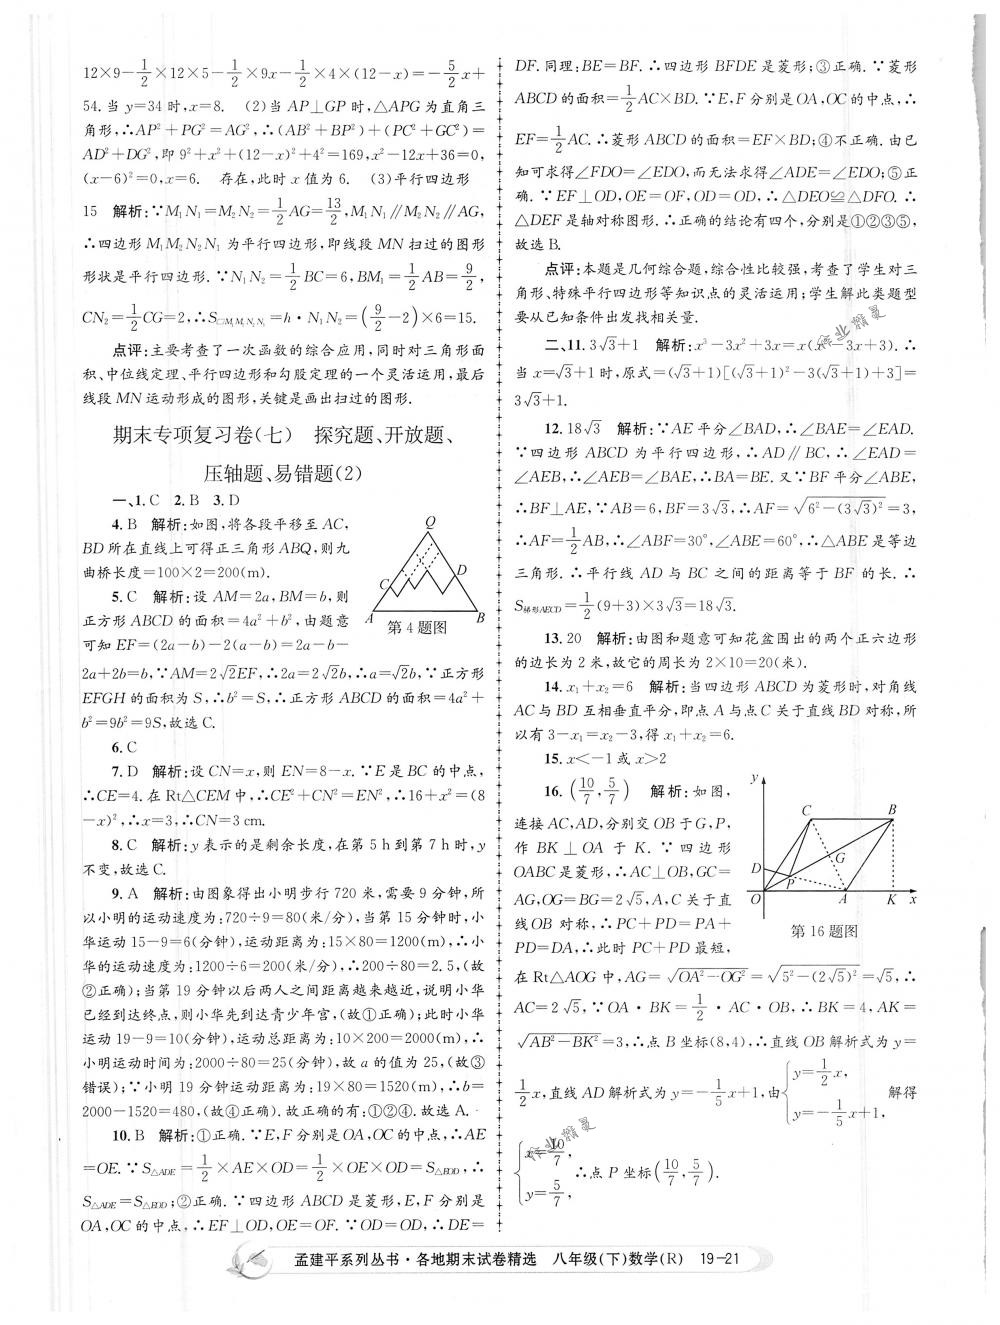 12×9−1/2×12×5−1/2×9x−1/2×4×(12−x)=−5/2x+
54.当 y=34 时,x=8. (2)当 AP⊥GP 时,△APG 为直角三
角形,∴AP²+PG²=AG²,∴(AB²+BP²)+(PC²+GC²)=
AD²+DG²,即 9²+x²+(12−x)²+4²=169,x²−12x+36=0,
(x−6)²=0,x=6. 存在,此时 x 值为 6. (3)平行四边形
15 解析:∵M₁N₁=M₂N₂=1/2AG=13/2,M₁N₁∥M₂N₂∥AG,
∴四边形 M₁M₂N₂N₁ 为平行四边形,即线段 MN 扫过的图形
形状是平行四边形.∵N₁N₂=1/2BC=6,BM₁=1/2AB=9/2,
CN₂=1/2CG=2,∴S▱M₁M₂N₂N₁=h·N₁N₂=(9/2−2)×6=15.
点评:主要考查了一次函数的综合应用,同时对三角形面
积、中位线定理、平行四边形和勾股定理的一个灵活运用,最后
线段 MN 运动形成的图形,关键是画出扫过的图形.
期末专项复习卷(七) 探究题、开放题、
压轴题、易错题(2)
一、1.C 2.B 3.D
4.B 解析:如图,将各段平移至 AC,
BD 所在直线上可得正三角形 ABQ,则九
曲桥长度=100×2=200(m).
5.C 解析:设 AM=2a,BM=b,则
正方形 ABCD 的面积=4a²+b²,由题意
可知 EF=(2a−b)−2(a−b)=2a−b−
2a+2b=b,∵AM=2√2EF,∴2a=2√2b,∴a=√2b,∵正方形
EFGH 的面积为 S,∴b²=S,∴正方形 ABCD 的面积=4a²+
b²=9b²=9S,故选 C.
Q
C
D
A
B
第 4 题图
6.C
7.D 解析:设 CN=x,则 EN=8−x.∵E 是 BC 的中点,
∴CE=4.在 Rt△CEM 中,∴CE²+CN²=EN²,∴16+x²=(8
−x)²,∴x=3,∴CN=3 cm.
8.C 解析:y 表示的是剩余长度,在第 5 h 到第 7 h 时,y
不变,故选 C.
9.A 解析:由图象得出小明步行 720 米,需要 9 分钟,所
以小明的运动速度为:720÷9=80(米/分),当第 15 分钟时,小
华运动 15−9=6(分钟),运动距离为:15×80=1200(m),∴小
华的运动速度为:1200÷6=200(米/分),∴200÷80=2.5,(故
②正确);当第 19 分钟以后两人之间距离越来越近,说明小华
已经到达终点,则小华先到达青少年宫,(故①正确);此时小华
运动 19−9=10(分钟),运动总距离为:10×200=2000(m),∴
小明运动时间为:2000÷80=25(分钟),故 a 的值为 25,(故③
错误);∵小明 19 分钟运动距离为:19×80=1520(m),∴b=
2000−1520=480,(故④正确).故正确的有:①②④.故选 A.
10.B 解析:①正确.∵E,F 分别是 OA,OC 的中点,∴AE
=OE.∵S△ADE=1/2×AE×OD=1/2×OE×OD=S△EOD,∴
S△ADE=S△EOD;②正确.∵四边形 ABCD 是菱形,E,F 分别是
OA,OC 的中点,∴EF⊥OD,OE=OF.∵OD=OD,∴DE=
DF.同理:BE=BF.∴四边形 BFDE 是菱形;③正确.∵菱形
ABCD 的面积=1/2AC×BD.∵E,F 分别是 OA,OC 的中点,∴
EF=1/2AC.∴菱形 ABCD 的面积=EF×BD;④不正确.由已
知可求得∠FDO=∠EDO,而无法求得∠ADE=∠EDO;⑤正
确.∵EF⊥OD,OE=OF,OD=OD,∴△DEO≌△DFO.∴
△DEF 是轴对称图形.∴正确的结论有四个,分别是①②③⑤,
故选 B.
点评:本题是几何综合题,综合性比较强,考查了学生对三
角形、特殊平行四边形等知识点的灵活运用;学生解此类题型
要从已知条件出发找相关量.
二、11.3√3+1 解析:x³−3x²+3x=x(x²−3x+3).∴
当 x=√3+1 时,原式=(√3+1)[(√3+1)²−3(√3+1)+3]=
3√3+1.
12.18√3 解析:∵AE 平分∠BAD,∴∠BAE=∠EAD.
∵四边形 ABCD 为平行四边形,∴AD∥BC,∴∠EAD=
∠AEB,∴∠AEB=∠BAE,∴BA=BE.又∵BF 平分∠ABE,
∴BF⊥AE,∵AB=6,BF=3√3,∴AF=√(6²−(3√3)²)=3,
∴AF=1/2AB,∴∠ABF=30°,∠ABE=60°,∴△ABE 是等边
三角形.∴平行线 AD 与 BC 之间的距离等于 BF 的长.∴
S梯形AECD=1/2(9+3)×3√3=18√3.
13.20 解析:由图和题意可知花盆围出的两个正六边形
的边长为 2 米,故它的周长为 2×10=20(米).
14.x₁+x₂=6 解析:当四边形 ABCD 为菱形时,对角线
AC 与 BD 互相垂直平分,即点 A 与点 C 关于直线 BD 对称,所
以有 3−x₁=x₂−3,得 x₁+x₂=6.
15.x<−1 或 x>2
16.(10/7,5/7) 解析:如图,
连接 AC,AD,分别交 OB 于 G,P,
作 BK⊥OA 于 K.∵四边形
OABC 是菱形,∴AC⊥OB,GC=
AG,OG=BG=2√5,A,C 关于直
线 OB 对称,∴PC+PD=PA+
PD=DA,∴此时 PC+PD 最短,
y
C
B
D
P
G
O
A
K
x
第 16 题图
在 Rt△AOG 中,AG=√(OA²−OG²)=√(5²−(2√5)²)=√5,∴
AC=2√5,∵OA·BK=1/2·AC·OB,∴BK=4,AK=
√(AB²−BK²)=3,∴点 B 坐标(8,4),∴直线 OB 解析式为 y=
1/2x,直线 AD 解析式为 y=−1/5x+1,由{y=1/2x, y=−1/5x+1, 解得
{x=10/7, y=5/7, ∴点 P 坐标(10/7,5/7).
孟建平系列丛书·各地期末试卷精选 八年级(下)数学(R) 19−21